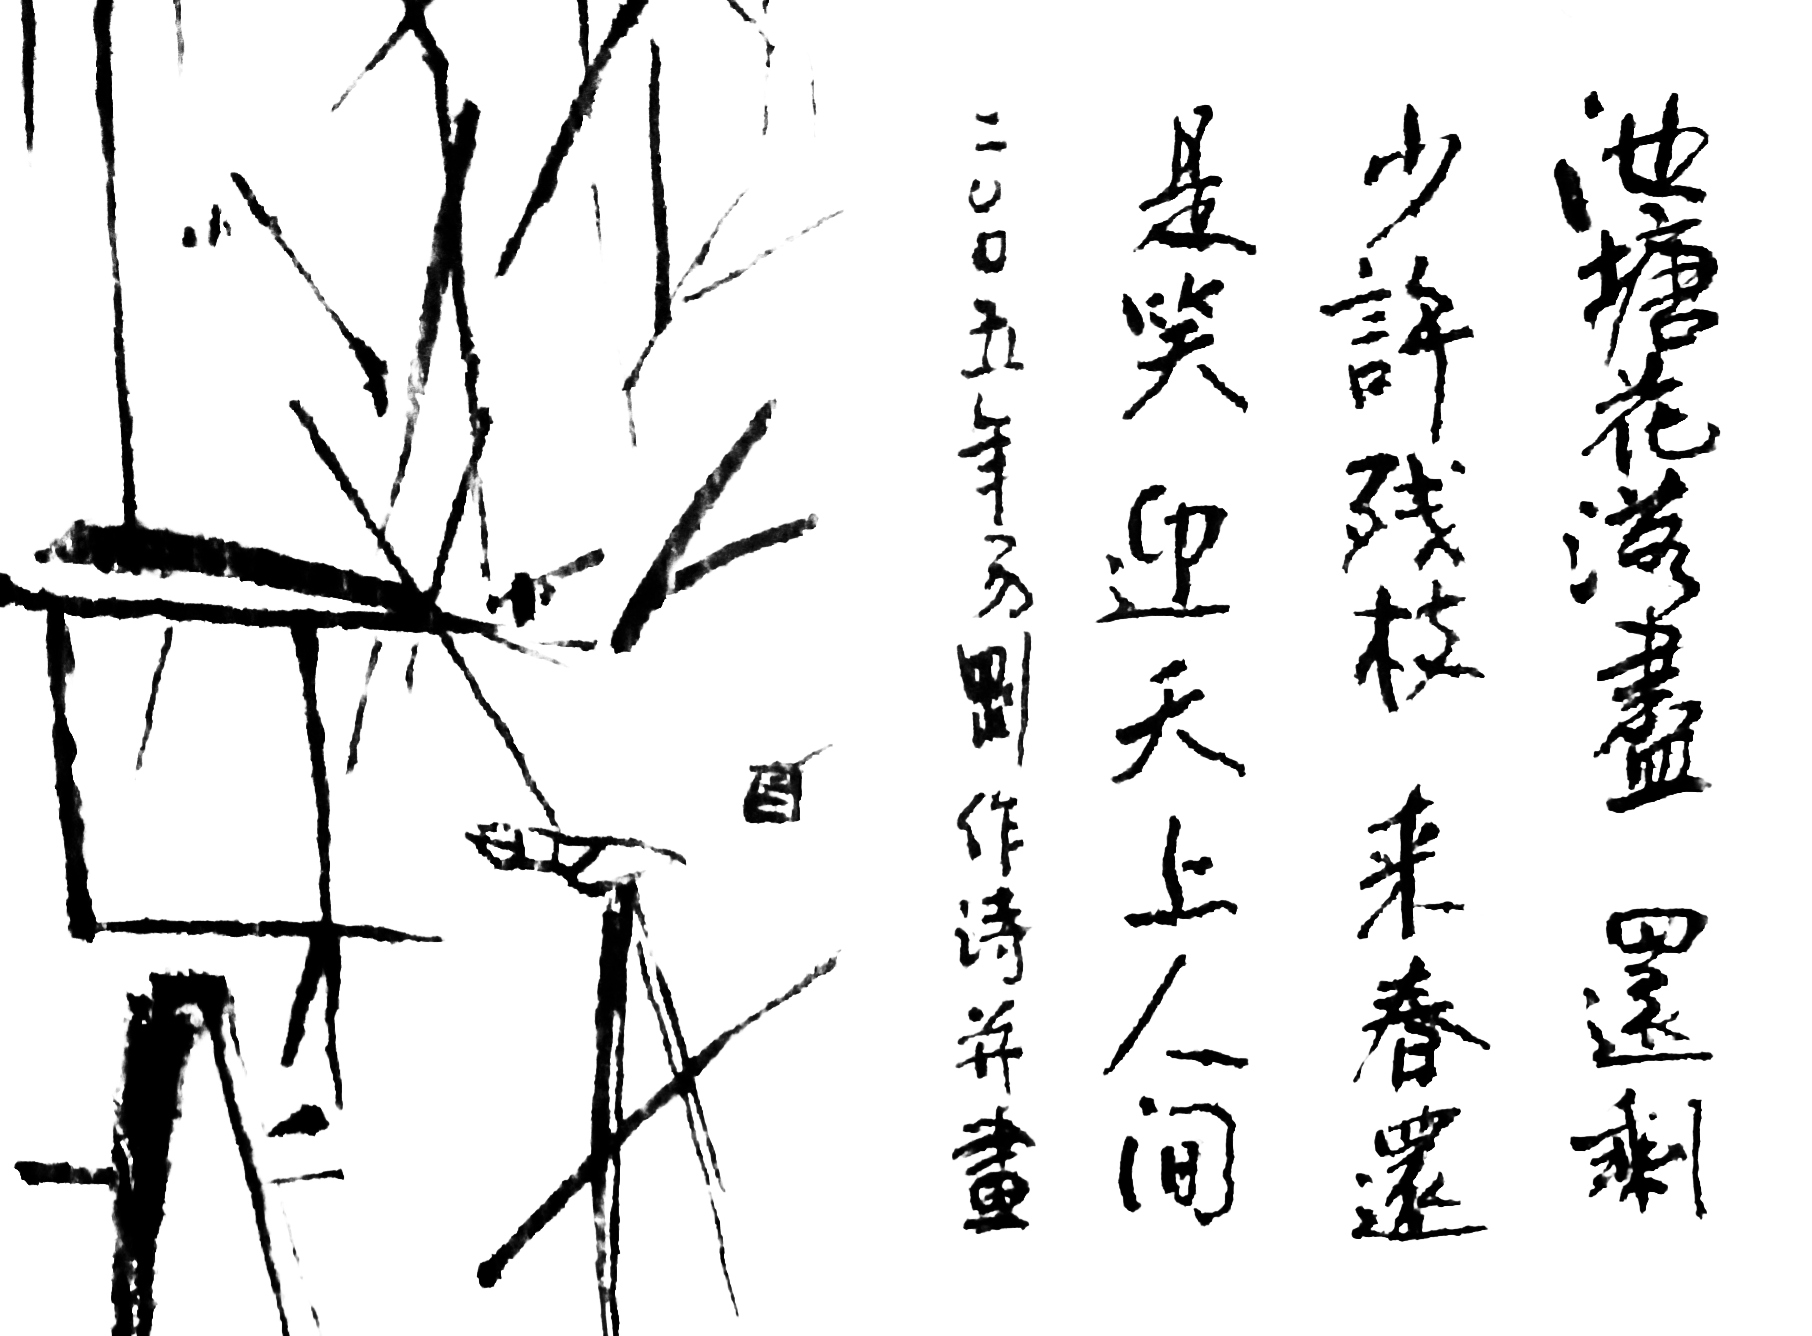 池塘花落盡還剩
少許残枝来春還
是笑迎天上人间
二〇〇五年劉作诗并畫